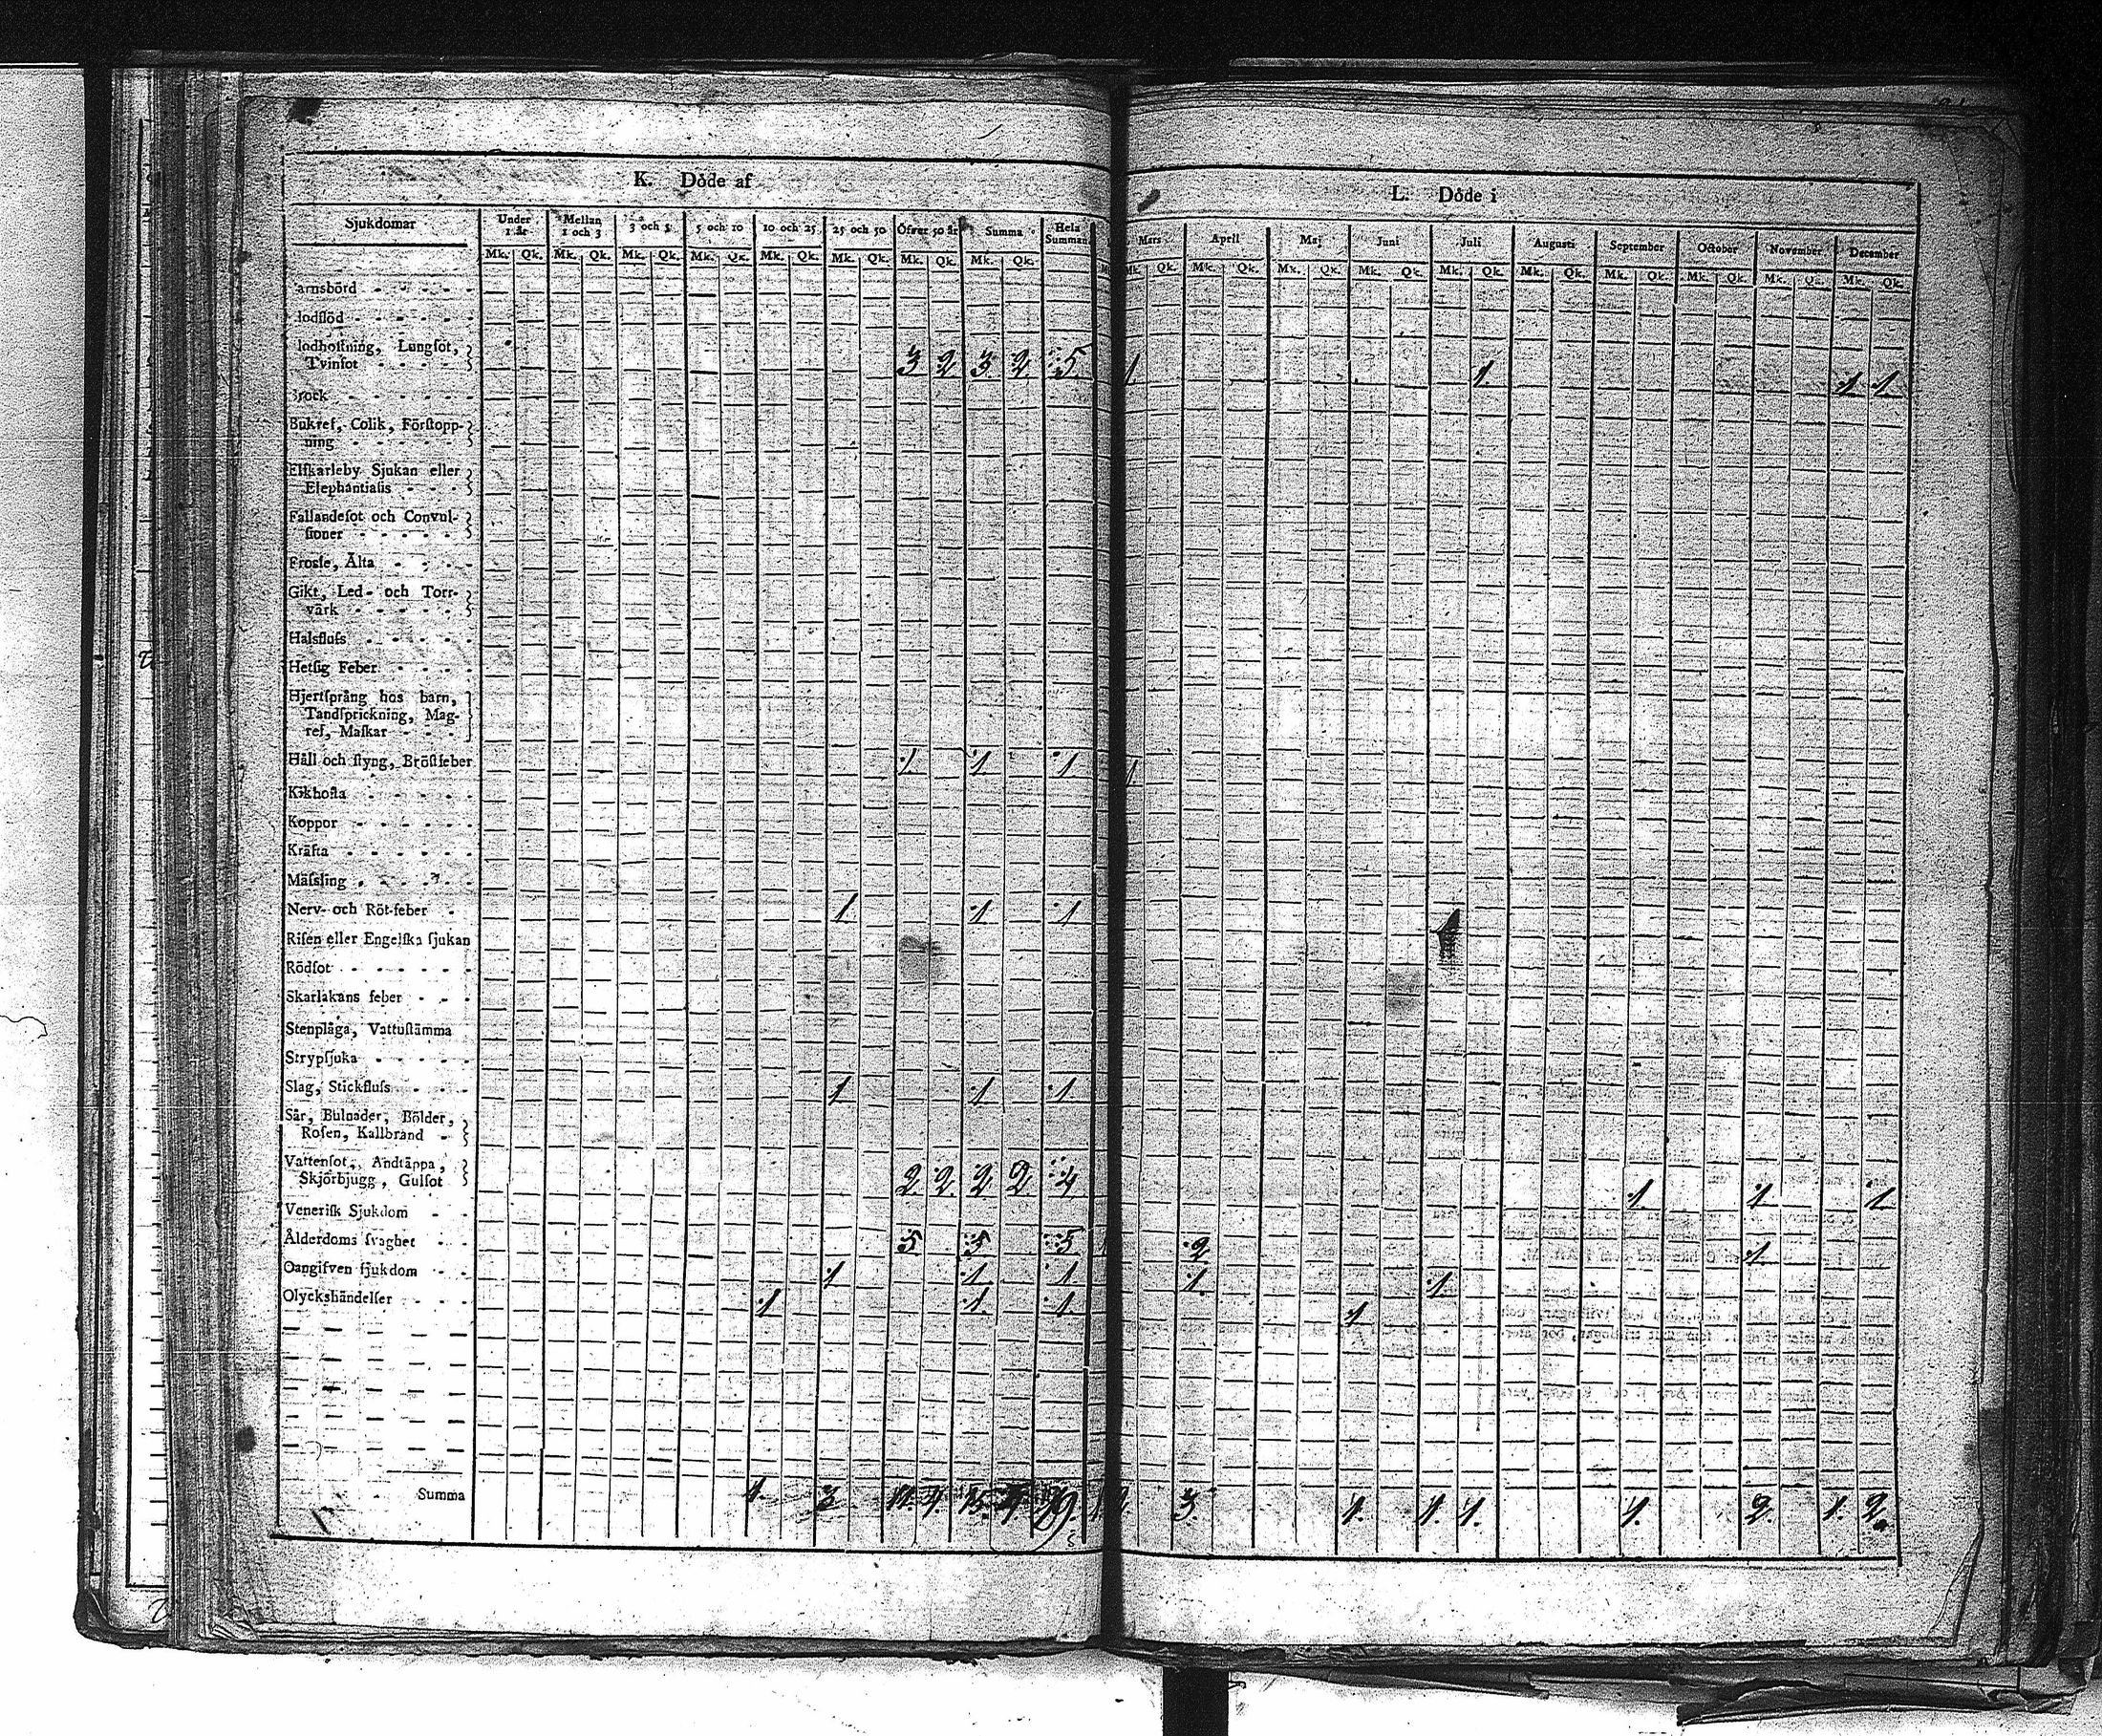 K. Döde af
Sjukdomar Under 1 år Mellan 1 och 3 3 och 5 5 och 10 10 och 25 25 och 50 Öfver 50 år Summa Hela Summan
Mk. Qk. Mk. Qk. Mk. Qk. Mk. Qk. Mk. Qk. Mk. Qk. Mk. Qk. Mk. Qk.
arnsbörd
lodflöd
lodhoſtning, Lungſot,
Tvinſot 3 2 3 2 5
Brock
Bukref, Colik, Förſtopp-
ning
Elfkarleby Sjukan eller
Elephantiaſis
Fallandeſot och Convul-
ſioner
Froſſe, Älta
Gikt, Led- och Torr-
värk
Halsfluſs
Hetſig Feber
Hjertſprång hos barn,
Tandſprickning, Mag-
ref, Maſkar
Håll och ſtyng, Bröſtfeber 1 1 1
Kikhoſta
Koppor
Kräfta
Mäſsling
Nerv- och Röt-feber 1 1 1
Riſen eller Engelſka ſjukan
Rödſot
Skarlakans feber
Stenplåga, Vattuſtämma
Strypſjuka
Slag, Stickfluſs 1 1 1
Sår, Bulnader, Bölder,
Roſen, Kallbrand
Vattenſot, Andtäppa,
Skjörbjugg, Gulſot 2 2 2 2 4
Veneriſk Sjukdom
Ålderdoms ſvaghet 5 5 5
Oangifven ſjukdom 1 1 1
Olyckshändelſer 1 1 1
Summa 1. 3 11. 4 15. 4 19.
L. Döde i
Mars April Maj Juni Juli Auguſti September October November December
Mk. Qk. Mk. Qk. Mk. Qk. Mk. Qk. Mk. Qk. Mk. Qk. Mk. Qk. Mk. Qk. Mk. Qk. Mk. Qk.
1 1 1 1
1
1 1 1
2 1
1 1
1
2. 3. 1. 1. 1. 1. 2. 1. 2.